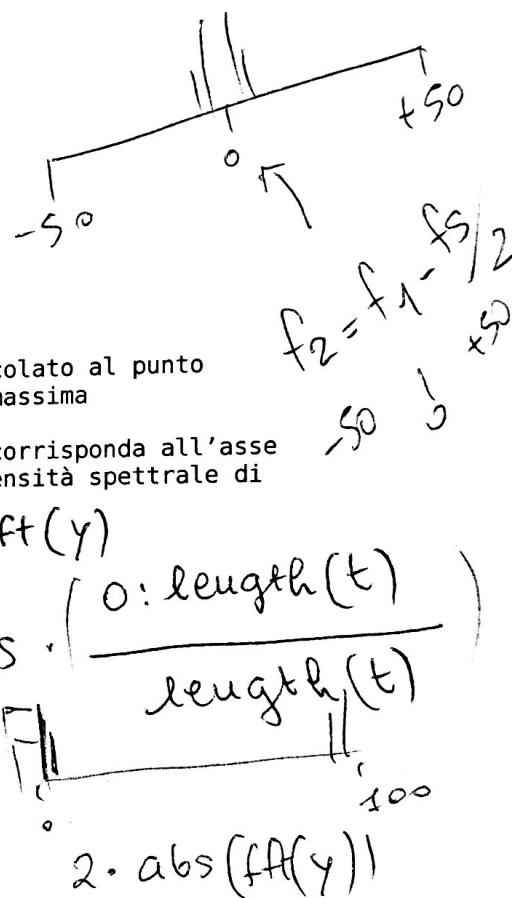 -50
0
+50
f2 = f1 - fs/2
-50
0
+50
colato al punto
massima
corrisponda all'asse
ensità spettrale di
ft(y)
s · ( 0: length(t) / length(t) )
0
100
2 · abs(fft(y))